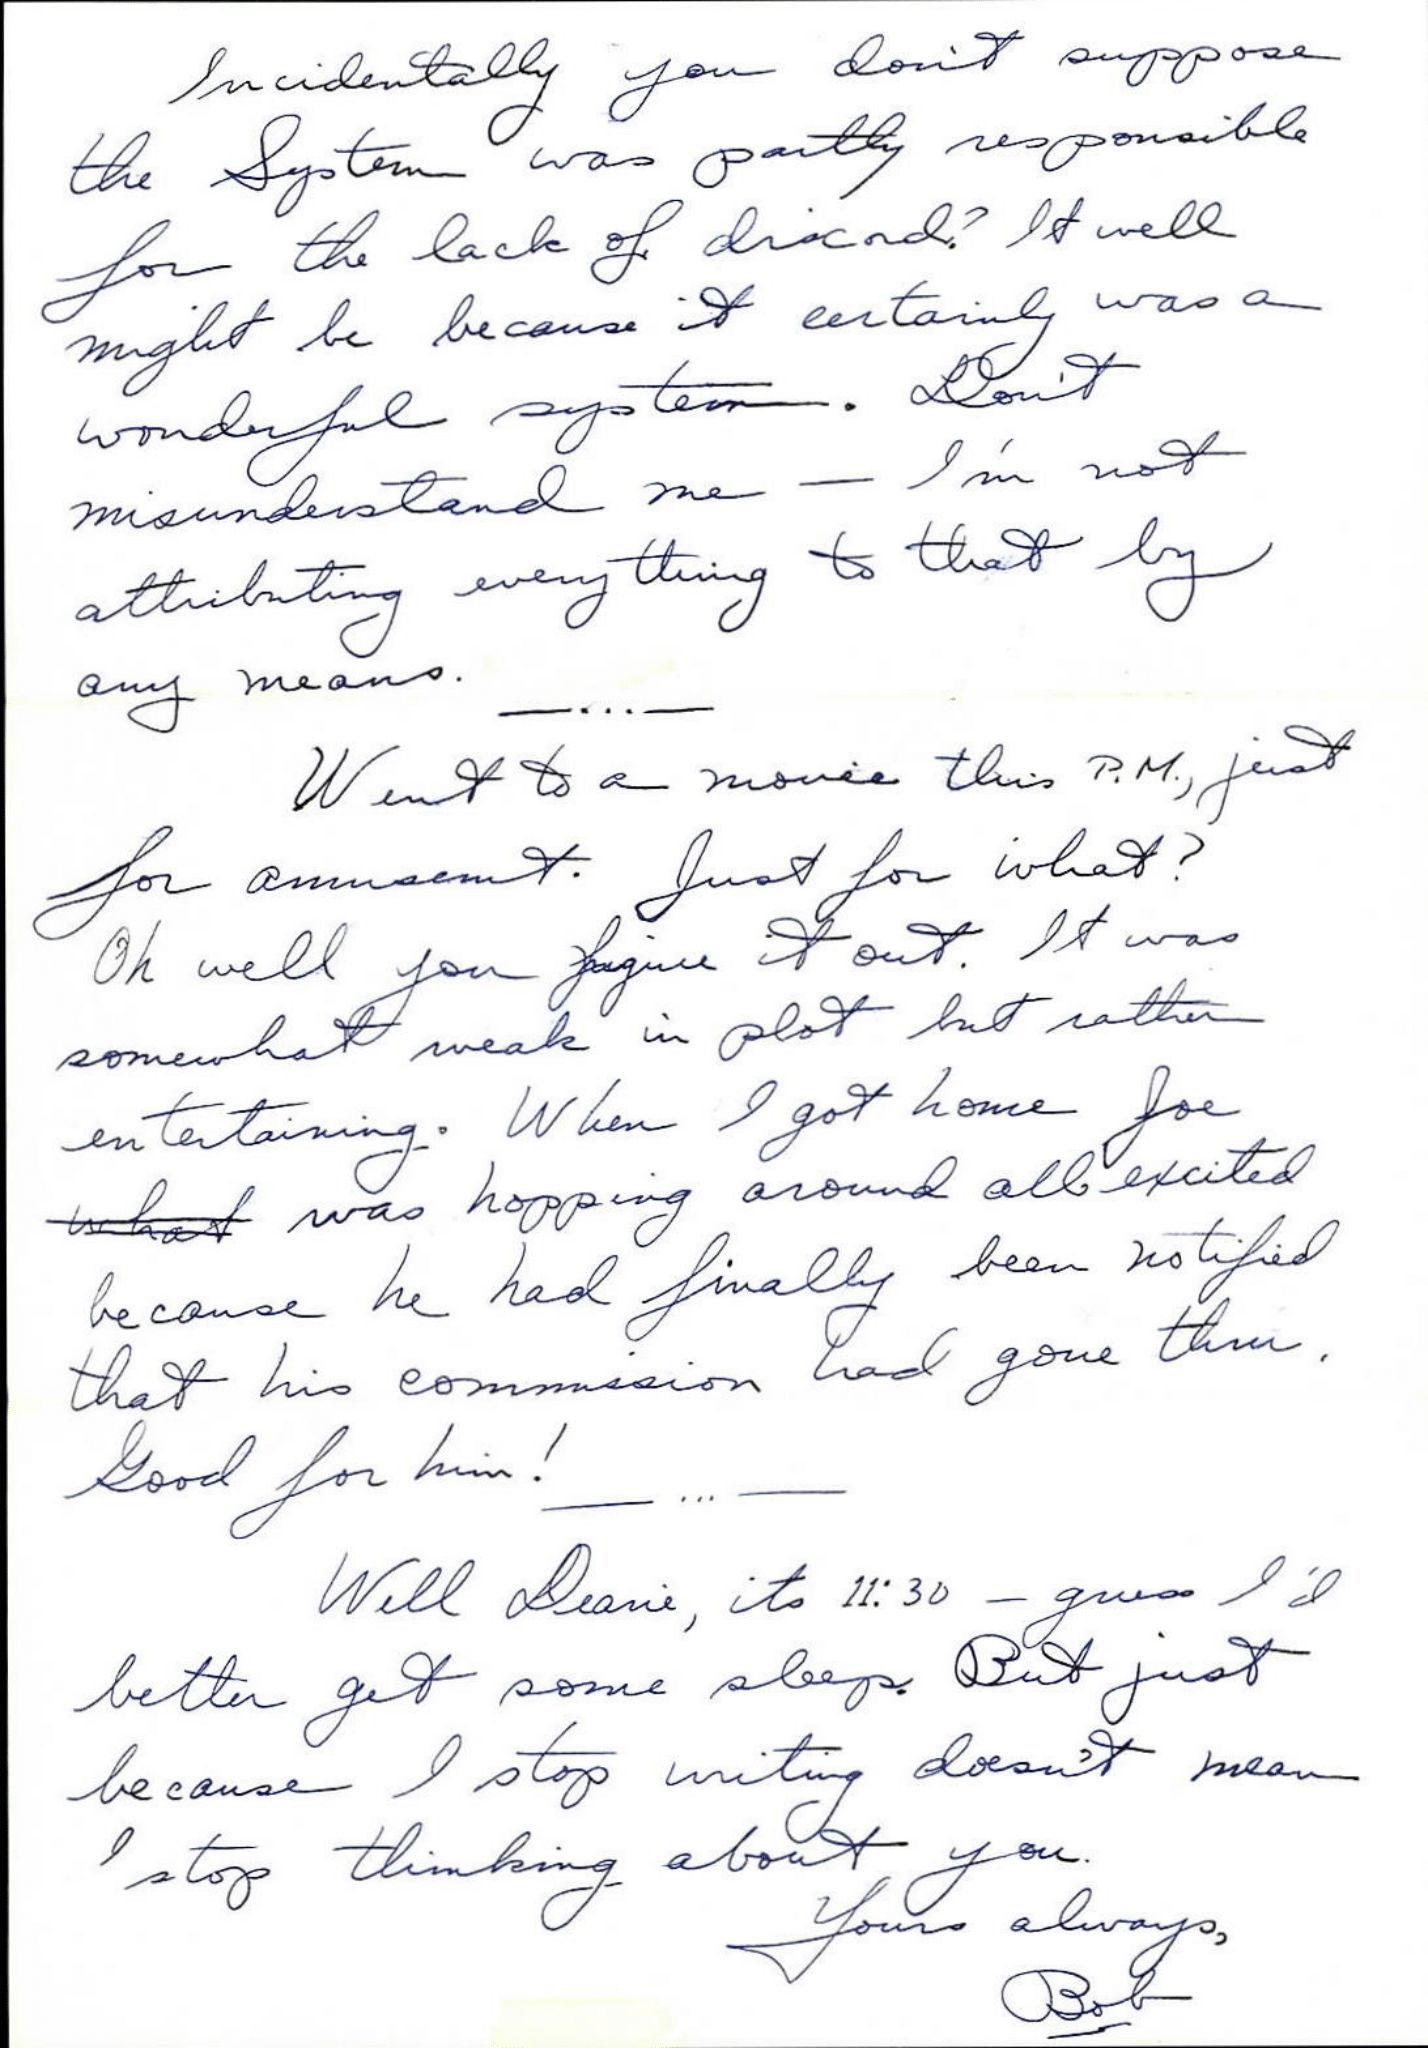 Incidentally you don't suppose
the System was partly responsible
for the lack of discord? It well
might be because it certainly was a
wonderful system. Don't
misunderstand me — I'm not
attributing everything to that by
any means.
—...—
Went to a movie this P.M., just
for amusemt. Just for what?
Oh well you figure it out. It was
somewhat weak in plot but rather
entertaining. When I got home Joe
what was hopping around all excited
because he had finally been notified
that his commission had gone thru.
Good for him!
— ... —
Well Dearie, its 11:30 — guess I'd
better get some sleep. But just
because I stop writing doesn't mean
I stop thinking about you.
Yours always,
Bob